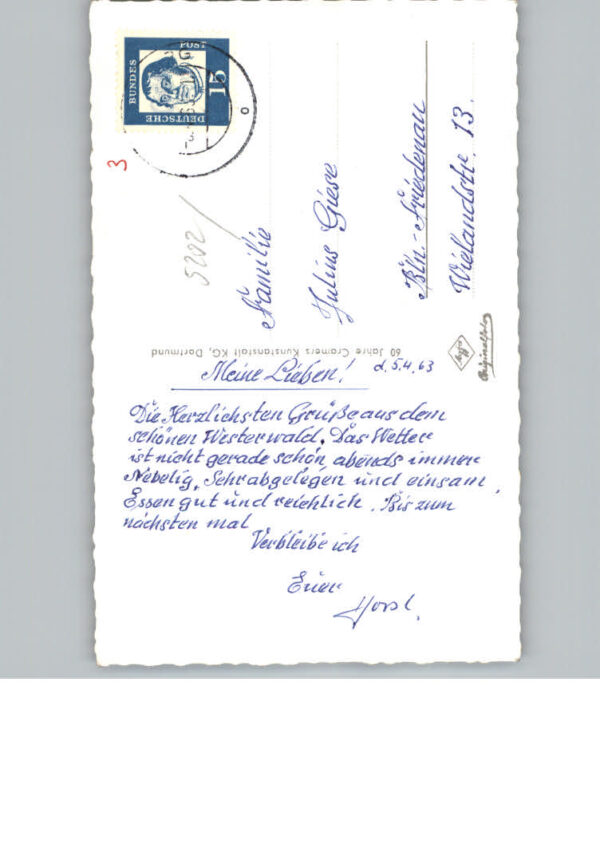 Meine Lieben! d. 5.4.63
Die Herzlichsten Grüße aus dem
schönen Westerwald. Das Wetter
ist nicht gerade schön, abends immer
Nebelig. Sehr abgelegen und einsam.
Essen gut und reichlich. Bis zum
nächsten mal
Verbleibe ich
Euer
Horst.
Familie
Julius Giese
Bln.-Friedenau
Wielandstr. 13.
5202/
3
DEUTSCHE
BUNDES
POST
15
60 Jahre Cramers Kunstanstalt KG, Dortmund
Agfa
Originalfoto